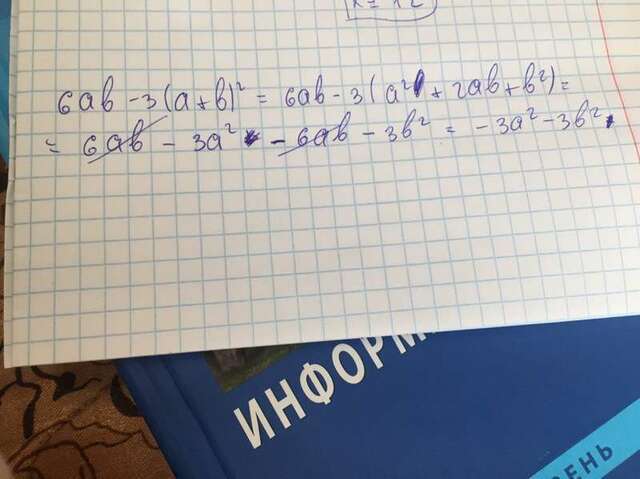 6ab - 3(a+b)² = 6ab - 3(a² + 2ab + b²) =
= 6ab - 3a² - 6ab - 3b² = -3a² - 3b²
ИНФОРМ
ВЕНЬ